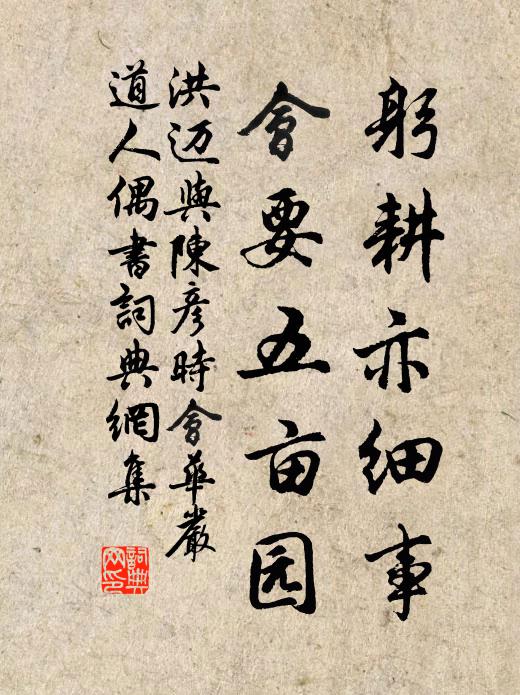 躬耕亦细事
會要五亩园
洪迈與陳彦時會華嚴
道人偶書詞典網集
詞典
网印